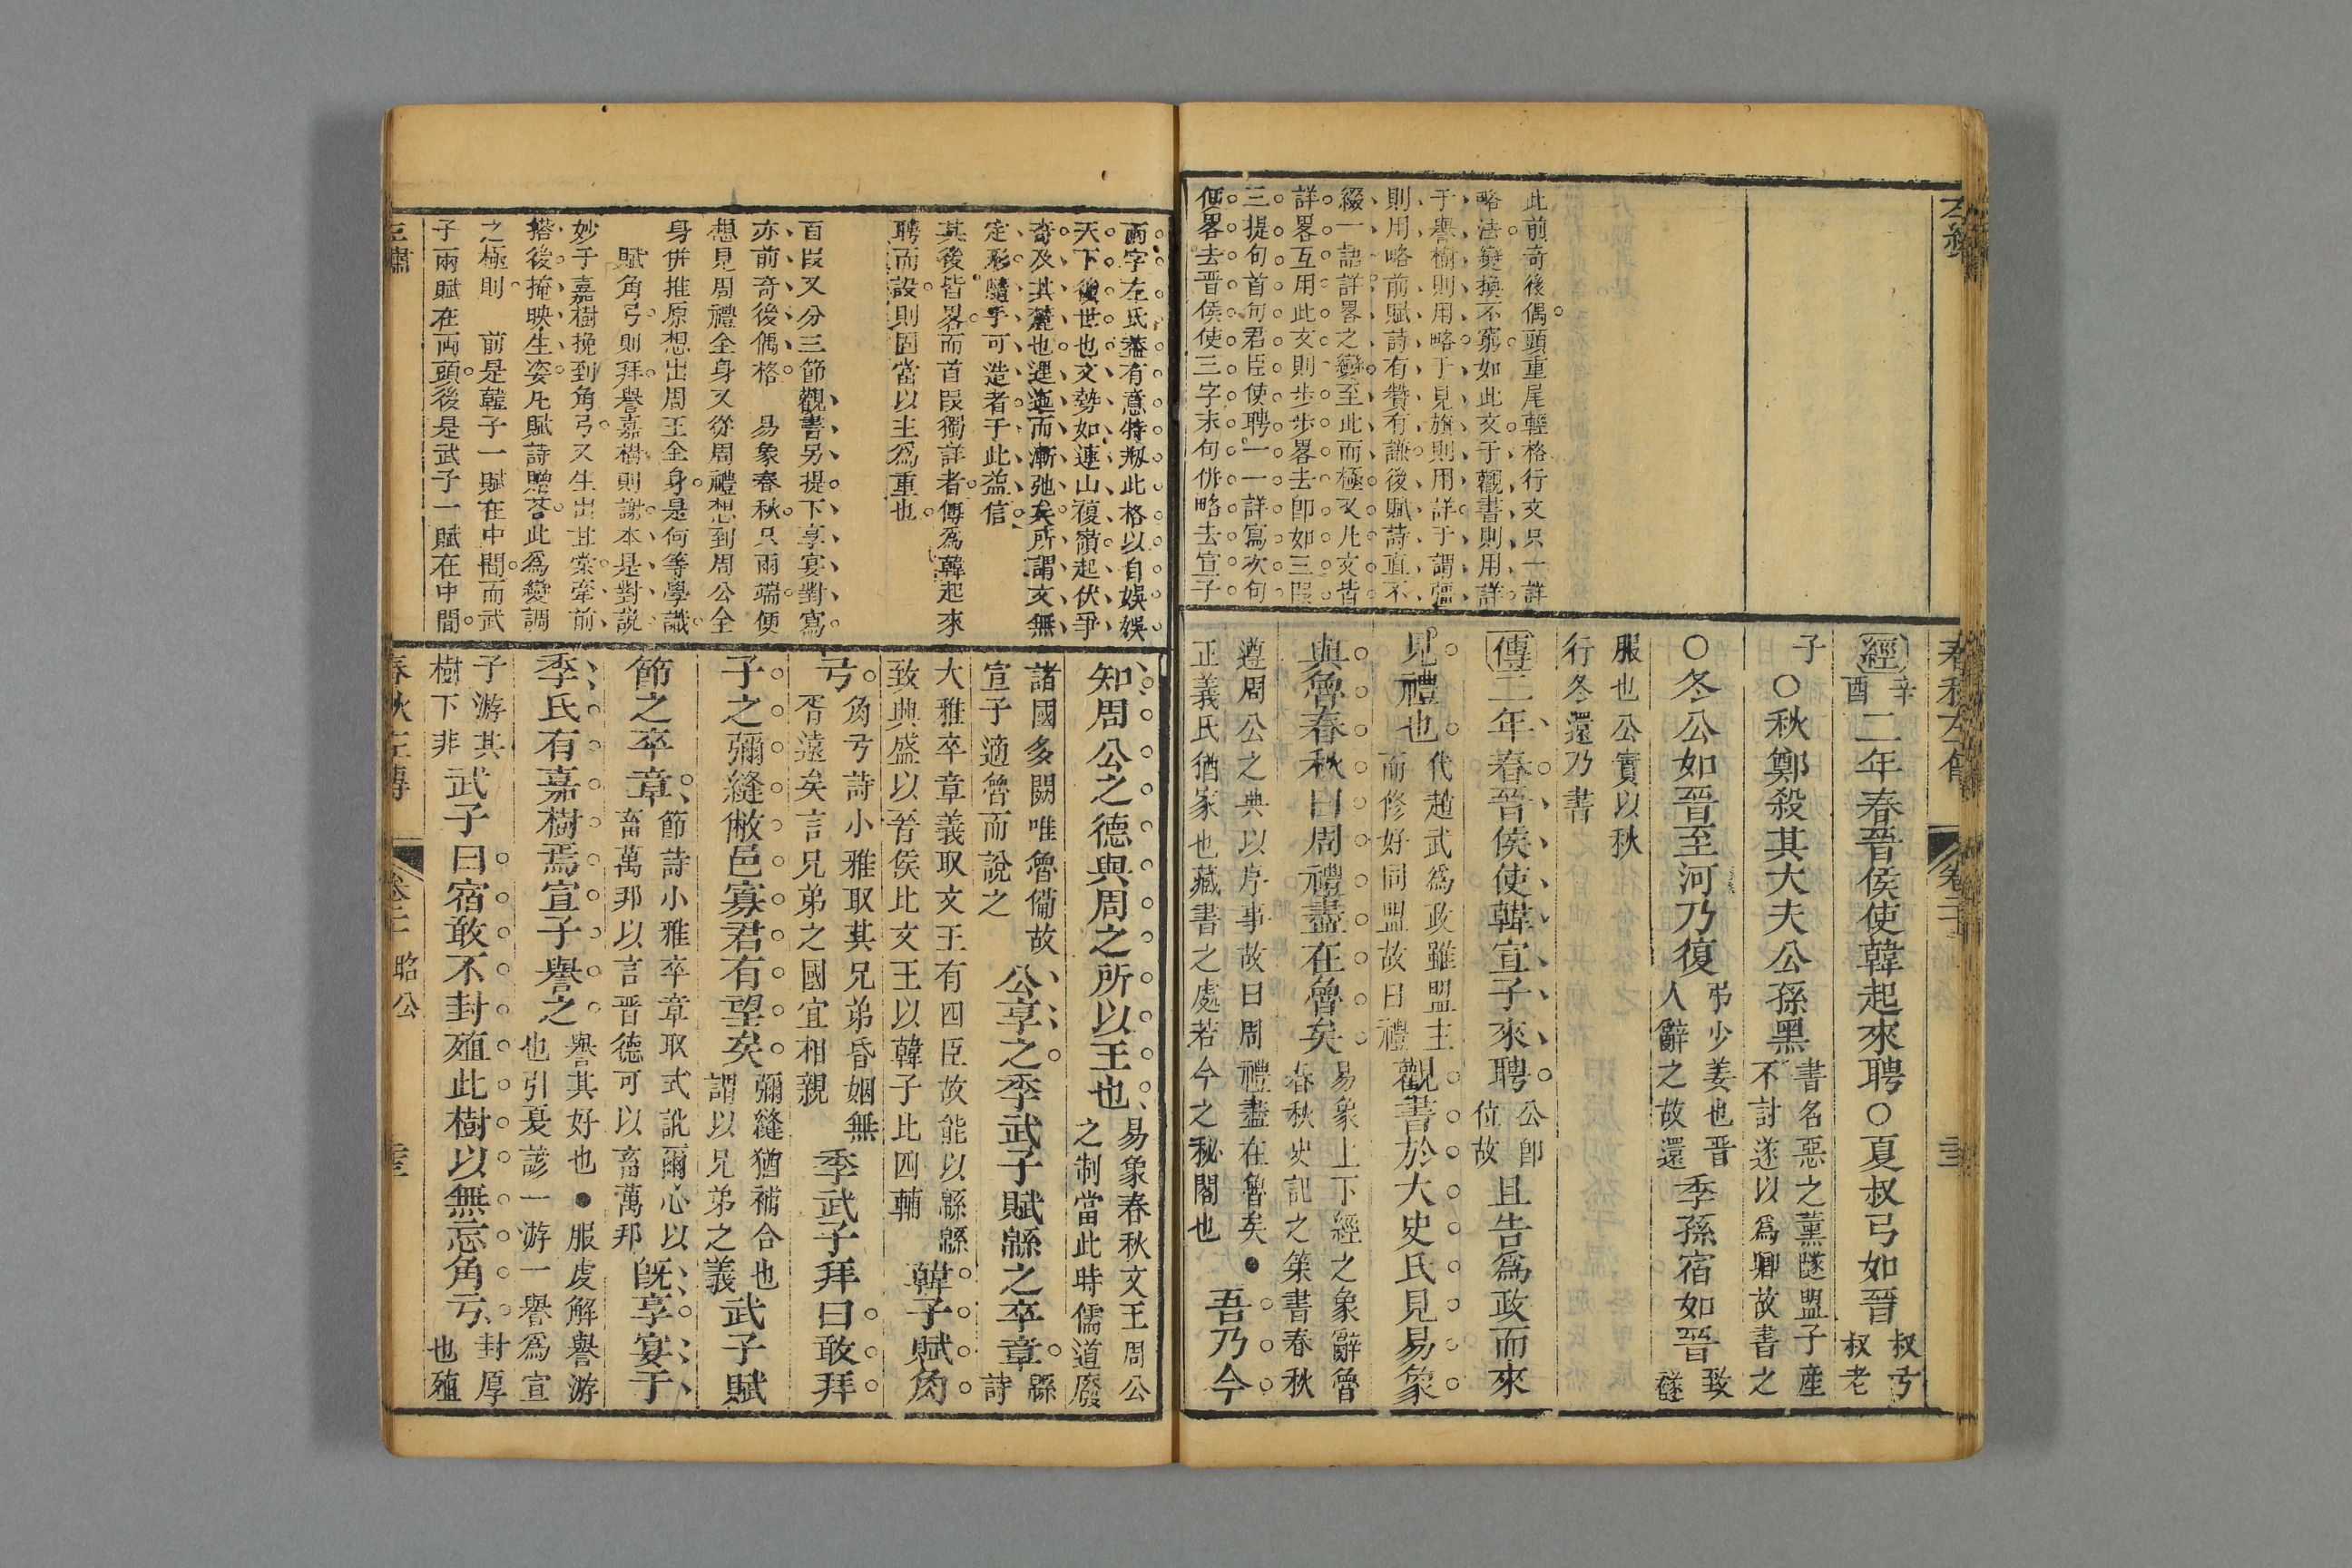 此前奇後偶頭重尾輕格行文只一詳
略法變換不窮如此文于觀書則用詳
于譽樹則用略于見旗則用詳于謂彊
則用略前賦詩有贊有謙後賦詩直不
綴一語詳畧之變至此而極又凡文皆
詳畧互用此文則步步畧去卽如三段
三提句首句君臣使聘一一詳寫次句
便畧去晉侯使三字末句併略去宣子
春秋左傳
卷二十
經辛酉二年春晉侯使韓起來聘○夏叔弓如晉叔弓叔老
子○秋鄭殺其大夫公孫黑書名惡之薰隧盟子產不討遂以爲卿故書之
○冬公如晉至河乃復弔少姜也晉人辭之故還季孫宿如晉致襚
服也公實以秋行冬還乃書
傳二年春晉侯使韓宣子來聘公卽位故且告爲政而來
見禮也代趙武爲政雖盟主而修好同盟故曰禮觀書於大史氏見易象
與魯春秋曰周禮盡在魯矣易象上下經之象辭魯春秋史記之策書春秋
遵周公之典以序事故曰周禮盡在魯矣●正義氏猶家也藏書之處若今之秘閣也吾乃今
兩字左氏蓋有意特剏此格以自娛娛
天下後世也文勢如連山複嶺起伏爭
奇及其麓也迤邐而漸弛矣所謂文無
定形隨手可造者于此益信
其後皆畧而首段獨詳者傳爲韓起來
聘而設則固當以主爲重也
首段又分三節觀書另提下享宴對寫
亦前奇後偶格 易象春秋只兩端便
想見周禮全身又從周禮想到周公全
身併推原想出周王全身是何等學識
賦角弓則拜譽嘉樹則謝本是對說
妙于嘉樹挽到角弓又生出甘棠牽前
搭後掩映生姿凡賦詩贈荅此爲變調
之極則 前是韓子一賦在中間而武
子兩賦在兩頭後是武子一賦在中間
知周公之德與周之所以王也易象春秋文王周公之制當此時儒道廢
諸國多闕唯魯備故宣子適魯而說之公享之季武子賦緜之卒章緜詩
大雅卒章義取文王有四臣故能以緜緜致興盛以晉侯比文王以韓子比四輔韓子賦角
弓角弓詩小雅取其兄弟昏姻無胥遠矣言兄弟之國宜相親季武子拜曰敢拜
子之彌縫敝邑寡君有望矣彌縫猶補合也謂以兄弟之義武子賦
節之卒章節詩小雅卒章取式訛爾心以畜萬邦以言晉德可以畜萬邦旣享宴于
季氏有嘉樹焉宣子譽之譽其好也●服虔解譽游也引夏諺一游一譽爲宣
子游其樹下非武子曰宿敢不封殖此樹以無忘角弓封厚也殖
春秋左傳
卷二十
昭公